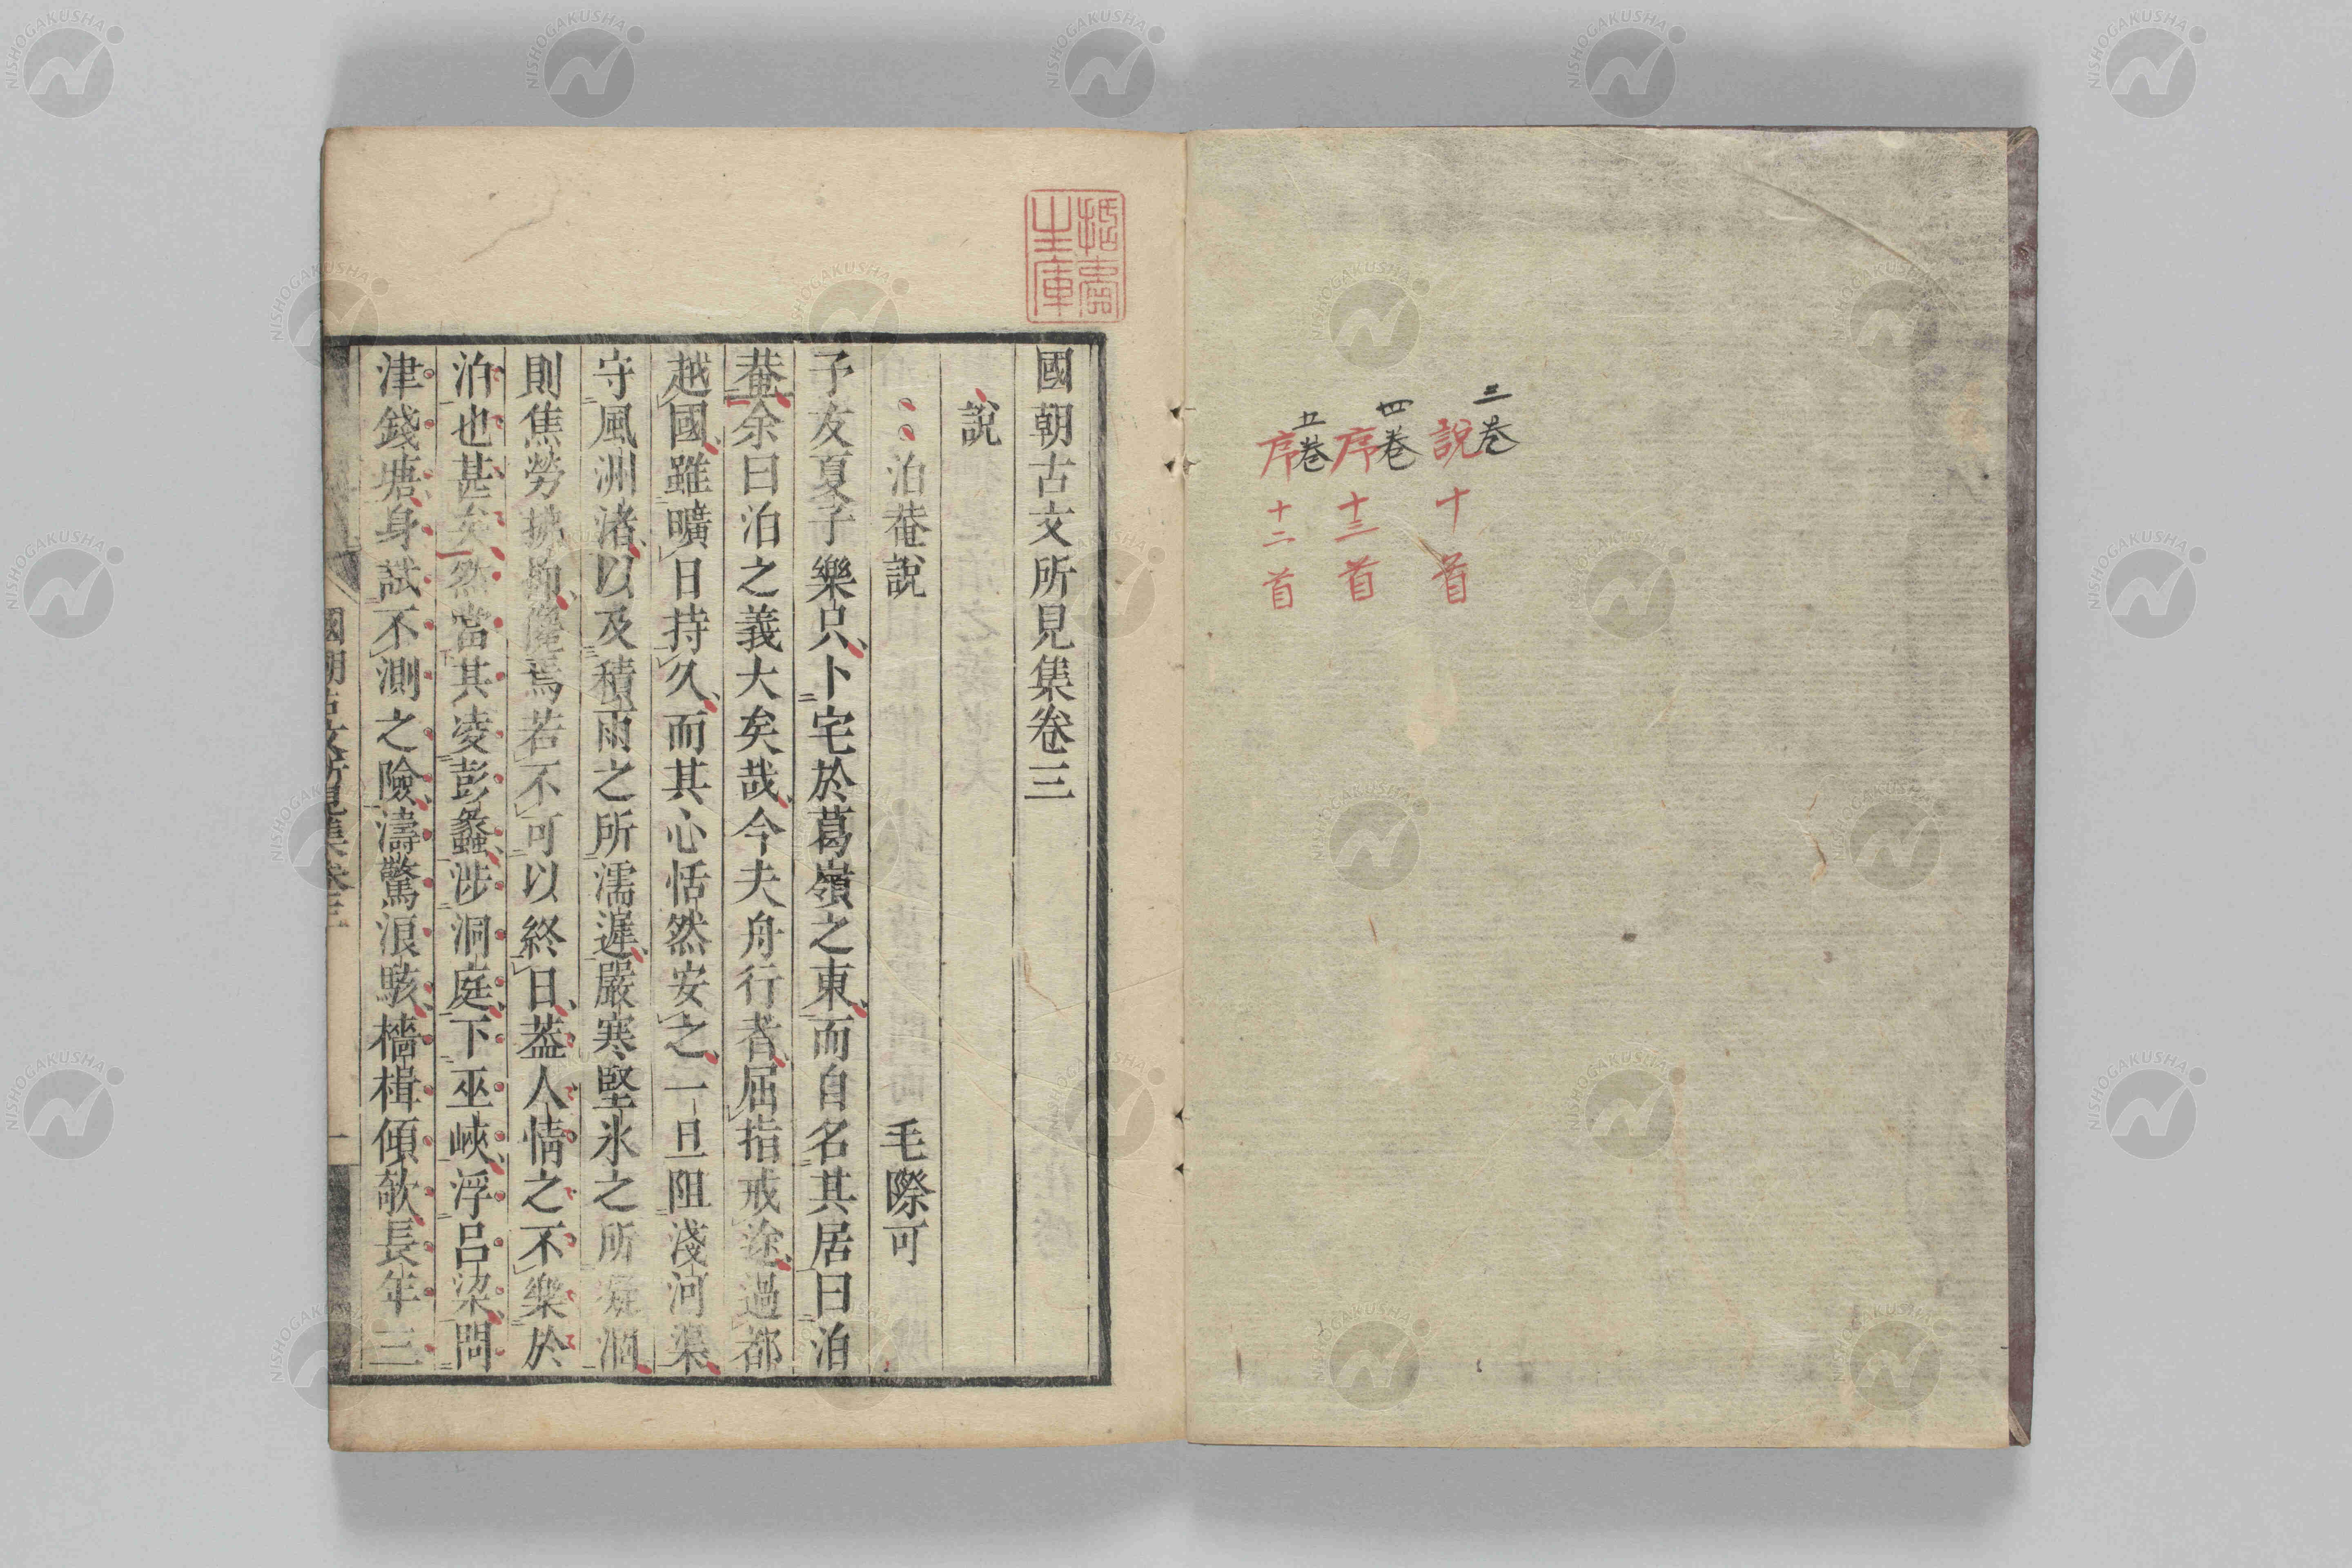 三巻
説十首
四巻
序十三首
五巻
序十二首
國朝古文所見集卷三
説
泊菴説 毛際可
予友夏子樂只卜宅於葛嶺之東而自名其居曰泊
菴余曰泊之義大矣哉今夫舟行者屆指戒途過都
越國雖曠日持久而其心恬然安之一旦阻淺河渠
守風洲渚以及積雨之所濡遲嚴寒堅氷之所凝涸
則焦勞拂抑儳焉若不可以終日葢人情之不樂於
泊也甚矣然當其凌彭蠡涉洞庭下巫峽浮呂梁問
津錢塘身試不測之險濤驚浪駭檣楫傾欹長年三
國朝古文所見集卷三
一
NISHOGAKUSHA